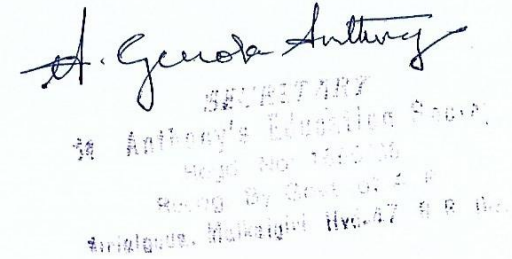 A. Genova Anthony
SECRETARY
St Anthony's Education Society
Regd No:
Recog By Govt of A P
Mirjalguda, Malkajgiri Hyd-47 R R Dist